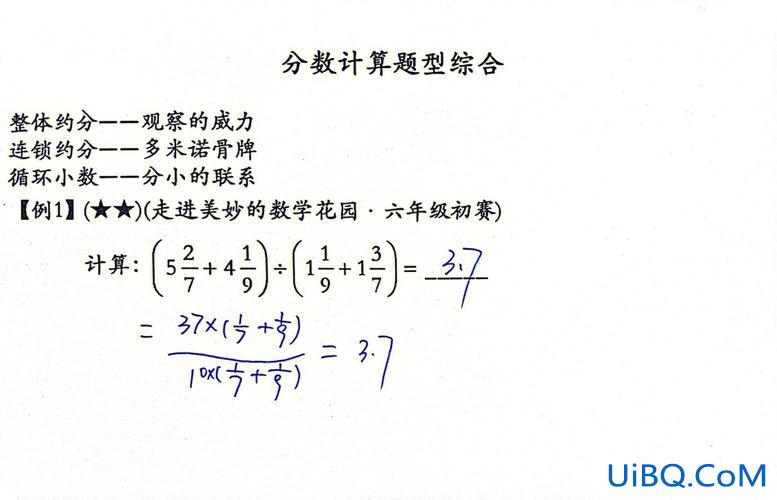 分数计算题型综合
整体约分——观察的威力
连锁约分——多米诺骨牌
循环小数——分小的联系
【例1】(★★)(走进美妙的数学花园·六年级初赛)
计算：(5 2/7 + 4 1/9) ÷ (1 1/9 + 1 3/7) = 3.7
= 37×(1/7 + 1/9) / 10×(1/7 + 1/9) = 3.7
UiBQ.CoM